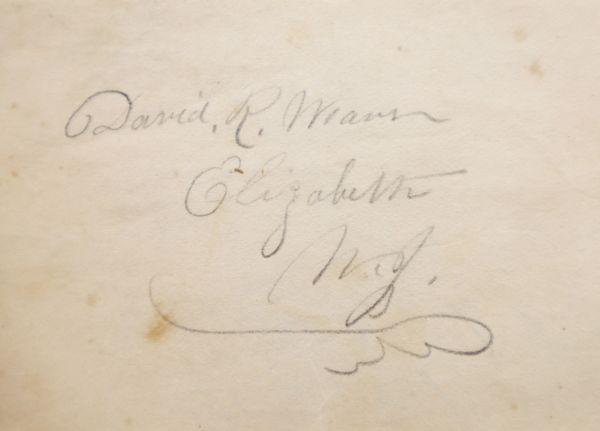 David. R. Weaver
Elizabeth
N. J.